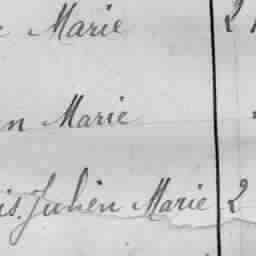 Marie 2
n Marie
is. Julien Marie 2